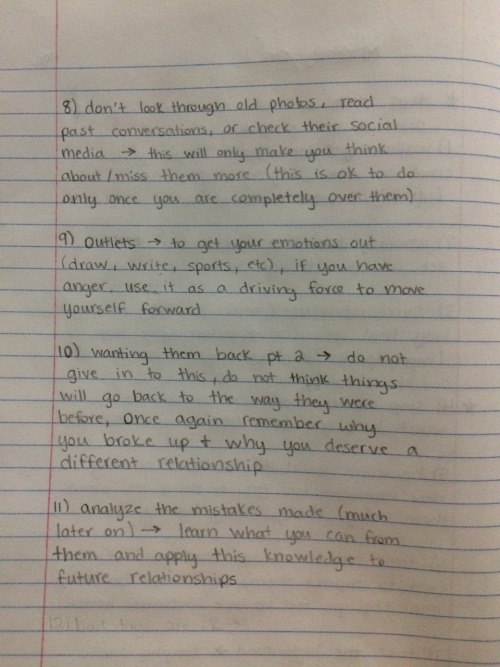 8) don't look through old photos, read
past conversations, or check their social
media → this will only make you think
about/miss them more (this is ok to do
only once you are completely over them)
9) outlets → to get your emotions out
(draw, write, sports, etc), if you have
anger, use it as a driving force to move
yourself forward
10) wanting them back pt 2 → do not
give in to this, do not think things
will go back to the way they were
before, once again remember why
you broke up + why you deserve a
different relationship
11) analyze the mistakes made (much
later on) → learn what you can from
them and apply this knowledge to
future relationships